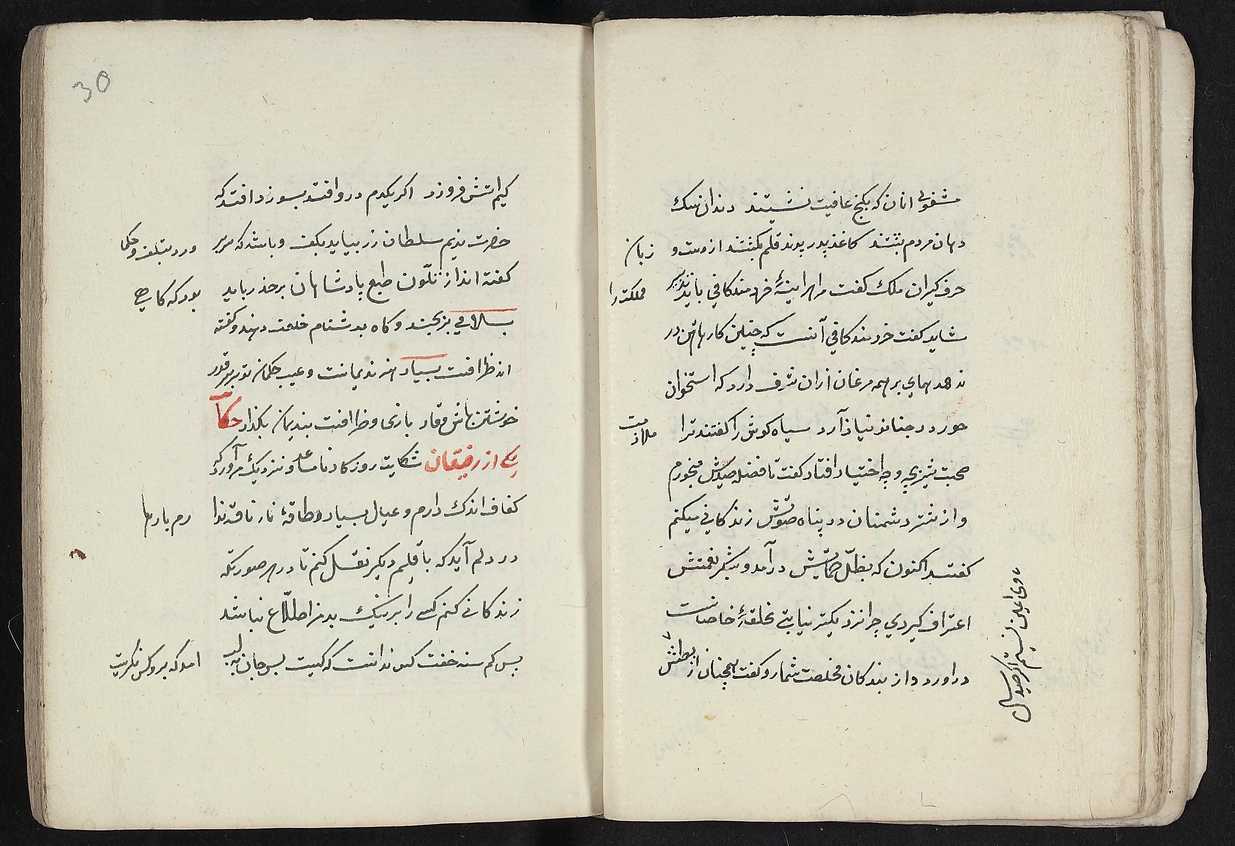 مشغولی انان که بکنج عافیت نشستند دندان سک
دهان مردم بستند کاغذ بدریدند قلم بشکستند از دست و
زبان
حرف کیران ملک کفت مرا هر اینهٔ خردمند کافی باید تدبیر
مملکت را
شاید کفت خردمند کافی آنست که چنین کارها تن در
ندهد همای بر همه مرغان ازان شرف دارد که استخوان
خورد و جانور نیازارد سیاه کوش را کفتند ترا
ملازمت
صحبت شیر بچه وجه اختیار افتاد کفت تا فضله صیدش میخورم
و از شر دشمنان در پناه صولتش زندکانی میکنم
کفتند اکنون که بظل حمایتش در آمدی و بشکر نعمتش
اعتراف کردی چرا نزدیکتر نیایی تا بحلقهٔ خاصانت
در اورد و از بندکان مخلصت شمارد کفت همچنان از بطش
وی ایمن نیستم اکر صد سال
30
کبر اتش فروزد اکر یکدم درو افتد بسوزد افتد که
حضرت ندیم سلطان زر بیاید بکف و باشد که سر
برود و حکما
کفته اند از تلون طبع پادشاهان بر حذر باید
بود که کاهی
بسلامی برنجند و کاه بدشنام خلعت دهند و کفته
اند ظرافت بسیار هنر ندیمانست و عیب حکمان تو بر سر قدر
خویشتن باش و وقار بازی و ظرافت بندیمان بکذار حکایت
یکی از رفیقان شکایت روزکار نامساعد بنزدیک من آورد که
کفاف اندک دارم و عیال بسیار و طاقهٔ بار فاقه ندا
رم بارها
در دلم آید که باقلیم دیکر نقل کنم تا در هر صورت که
زندکانی کنم کسی را بر نیک بدمن اطلاع نباشد
بس کرسنه خفت کس ندانست که کیست بس جان بلب
امد که برو کس نکریست